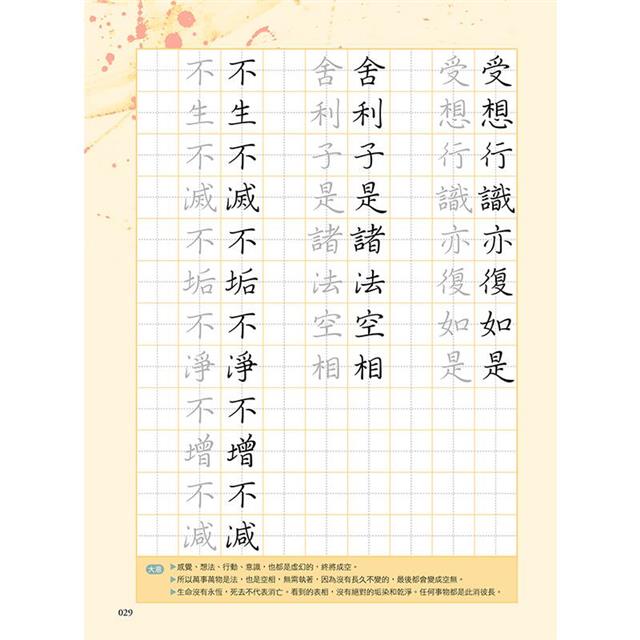 受想行識亦復如是
受想行識亦復如是
舍利子是諸法空相
舍利子是諸法空相
不生不滅不垢不淨不增不減
不生不滅不垢不淨不增不減
大意
▶感覺、想法、行動、意識，也都是虛幻的，終將成空。
▶所以萬事萬物是法，也是空相，無需執著，因為沒有長久不變的，最後都會變成空無。
▶生命沒有永恆，死去不代表消亡。看到的表相，沒有絕對的垢染和乾淨。任何事物都是此消彼長。
029